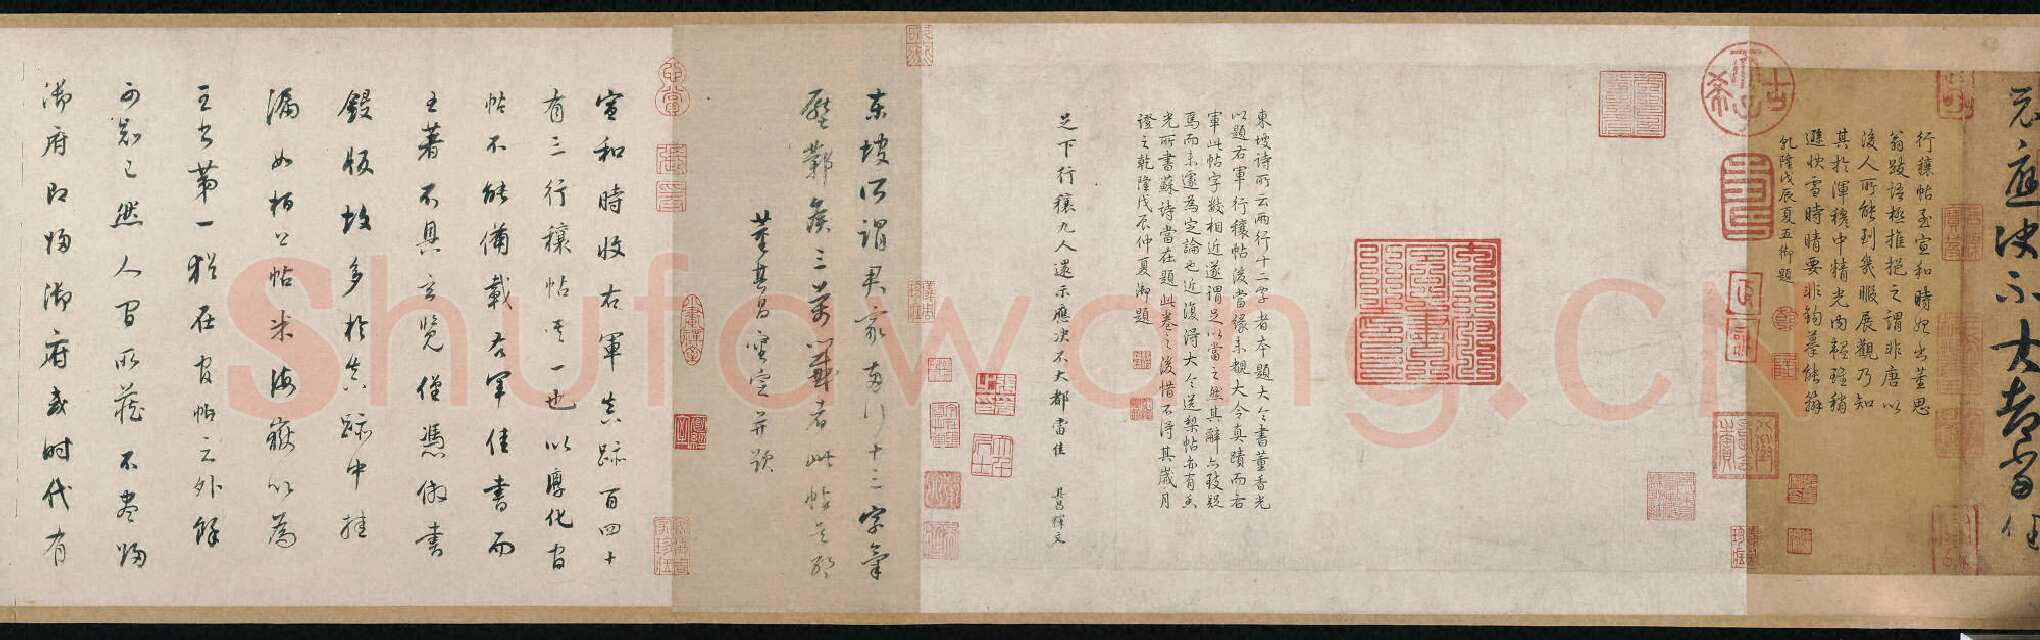 足下行穰九人還示應決不大都當佳
行穰帖至宣和時始出董思
翁跋語極推挹之謂非唐以
後人所能到幾暇展觀乃知
其於渾穆中精光內韞雖稍
遜快雪時晴要非鉤摹能辦
乾隆戊辰夏五御題
古希天子
東坡詩所云兩行十二字者本題大令書董香光
以題右軍行穰帖後當緣未覩大令真蹟而右
軍此帖字數相近遂謂足以當之然其辭亦致疑
焉而未遽為定論也近復得大令送梨帖亦有香
光所書蘇詩當在題此卷之後惜不得其歲月
證之乾隆戊辰仲夏御題
足下行穰九人還示應決不大都當佳
其昌釋文
東坡所謂君家兩行十三字氣
壓鄴侯三萬籤者此帖是耶
董其昌審定并題
宣和時收右軍真跡百四十
有三行穰帖其一也以淳化官
帖不能備載右軍佳書而
王著不具玄覽僅憑倣書
鋟版故多於真跡中挂
漏如桓公帖米海嶽以為
王書第一猶在官帖之外餘
可知已然人間所藏不盡歸
御府即歸御府或時代有
Shufawang.CN